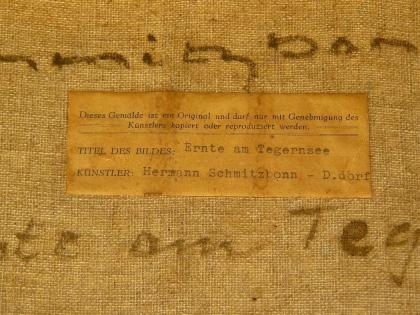 Dieses Gemälde ist ein Original und darf nur mit Genehmigung des
Künstlers kopiert oder reproduziert werden.
TITEL DES BILDES: Ernte am Tegernsee
KÜNSTLER: Hermann Schmitzbonn - D.dorf
te am Teg